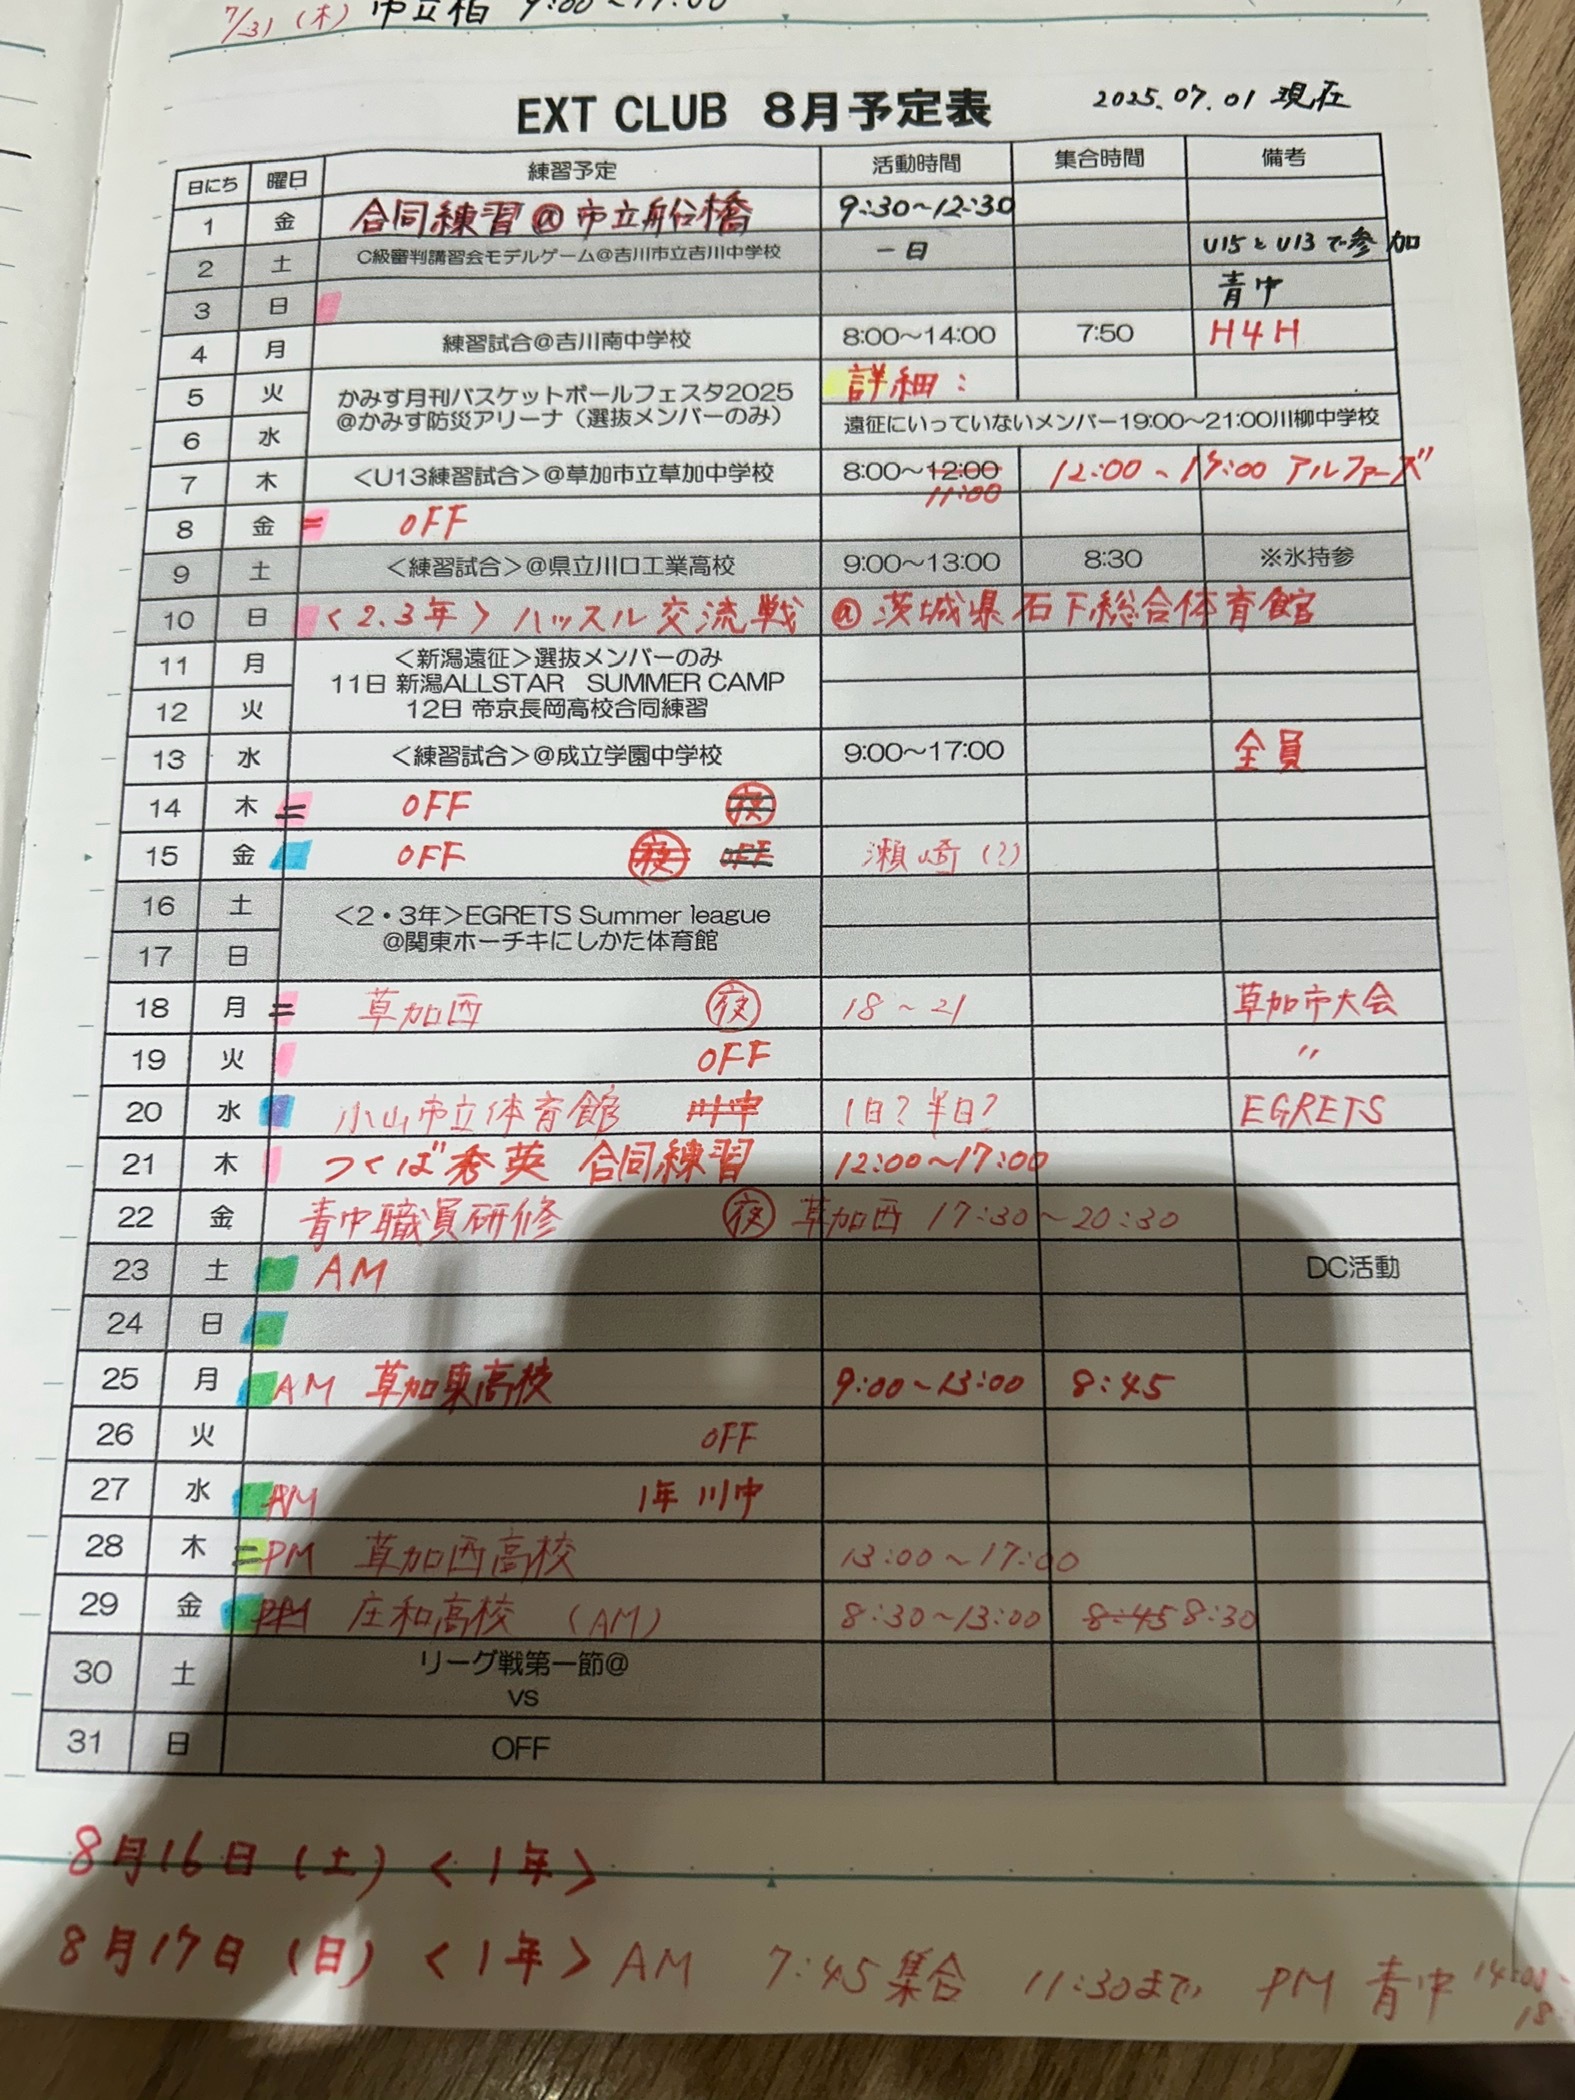 7/31 (木) 市立柏 9:00~17:00
EXT CLUB 8月予定表 2025.07.01 現在
日にち 曜日 練習予定 活動時間 集合時間 備考
1 金 合同練習@市立船橋 9:30~12:30
2 土 C級審判講習会モデルゲーム@吉川市立吉川中学校 一日 U15とU13で参加
3 日 青中
4 月 練習試合@吉川南中学校 8:00~14:00 7:50 H4H
5 火 かみす月刊バスケットボールフェスタ2025 詳細:
6 水 @かみす防災アリーナ(選抜メンバーのみ) 遠征にいっていないメンバー19:00~21:00川柳中学校
7 木 <U13練習試合>@草加市立草加中学校 8:00~12:00 11:00 12:00~17:00 アルファーズ
8 金 OFF
9 土 <練習試合>@県立川口工業高校 9:00~13:00 8:30 ※氷持参
10 日 <2.3年> ハッスル交流戦 @茨城県石下総合体育館
11 月 <新潟遠征>選抜メンバーのみ
11日 新潟ALLSTAR SUMMER CAMP
12 火 12日 帝京長岡高校合同練習
13 水 <練習試合>@成立学園中学校 9:00~17:00 全員
14 木 OFF 夜
15 金 OFF 夜 OFF 瀬崎(?)
16 土 <2・3年>EGRETS Summer league
17 日 @関東ホーチキにしかた体育館
18 月 草加西 夜 18~21 草加市大会
19 火 OFF 〃
20 水 小山市立体育館 川中 1日?半日? EGRETS
21 木 つくば秀英 合同練習 12:00~17:00
22 金 青中職員研修 夜 草加西 17:30~20:30
23 土 AM DC活動
24 日
25 月 AM 草加東高校 9:00~13:00 8:45
26 火 OFF
27 水 AM 1年 川中
28 木 PM 草加西高校 13:00~17:00
29 金 PM 庄和高校 (AM) 8:30~13:00 8:45 8:30
30 土 リーグ戦第一節@
vs
31 日 OFF
8月16日(土)<1年>
8月17日(日)<1年> AM 7:45集合 11:30まで PM 青中 14:00~
18: